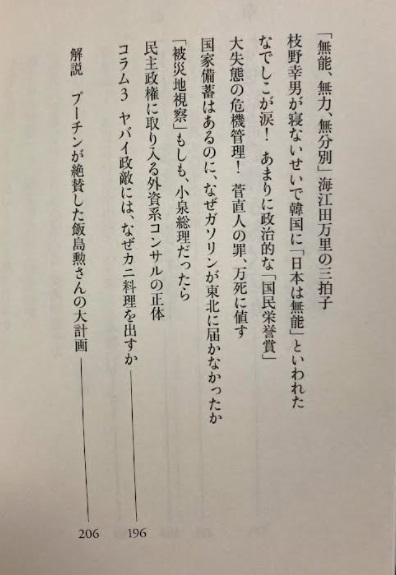 「無能、無力、無分別」海江田万里の三拍子
枝野幸男が寝ないせいで韓国に「日本は無能」といわれた
なでしこが涙！ あまりに政治的な「国民栄誉賞」
大失態の危機管理！ 菅直人の罪、万死に値す
国家備蓄はあるのに、なぜガソリンが東北に届かなかったか
「被災地視察」もしも、小泉総理だったら
民主政権に取り入る外資系コンサルの正体
コラム3 ヤバイ政敵には、なぜカニ料理を出すか 196
解説 プーチンが絶賛した飯島勲さんの大計画 206